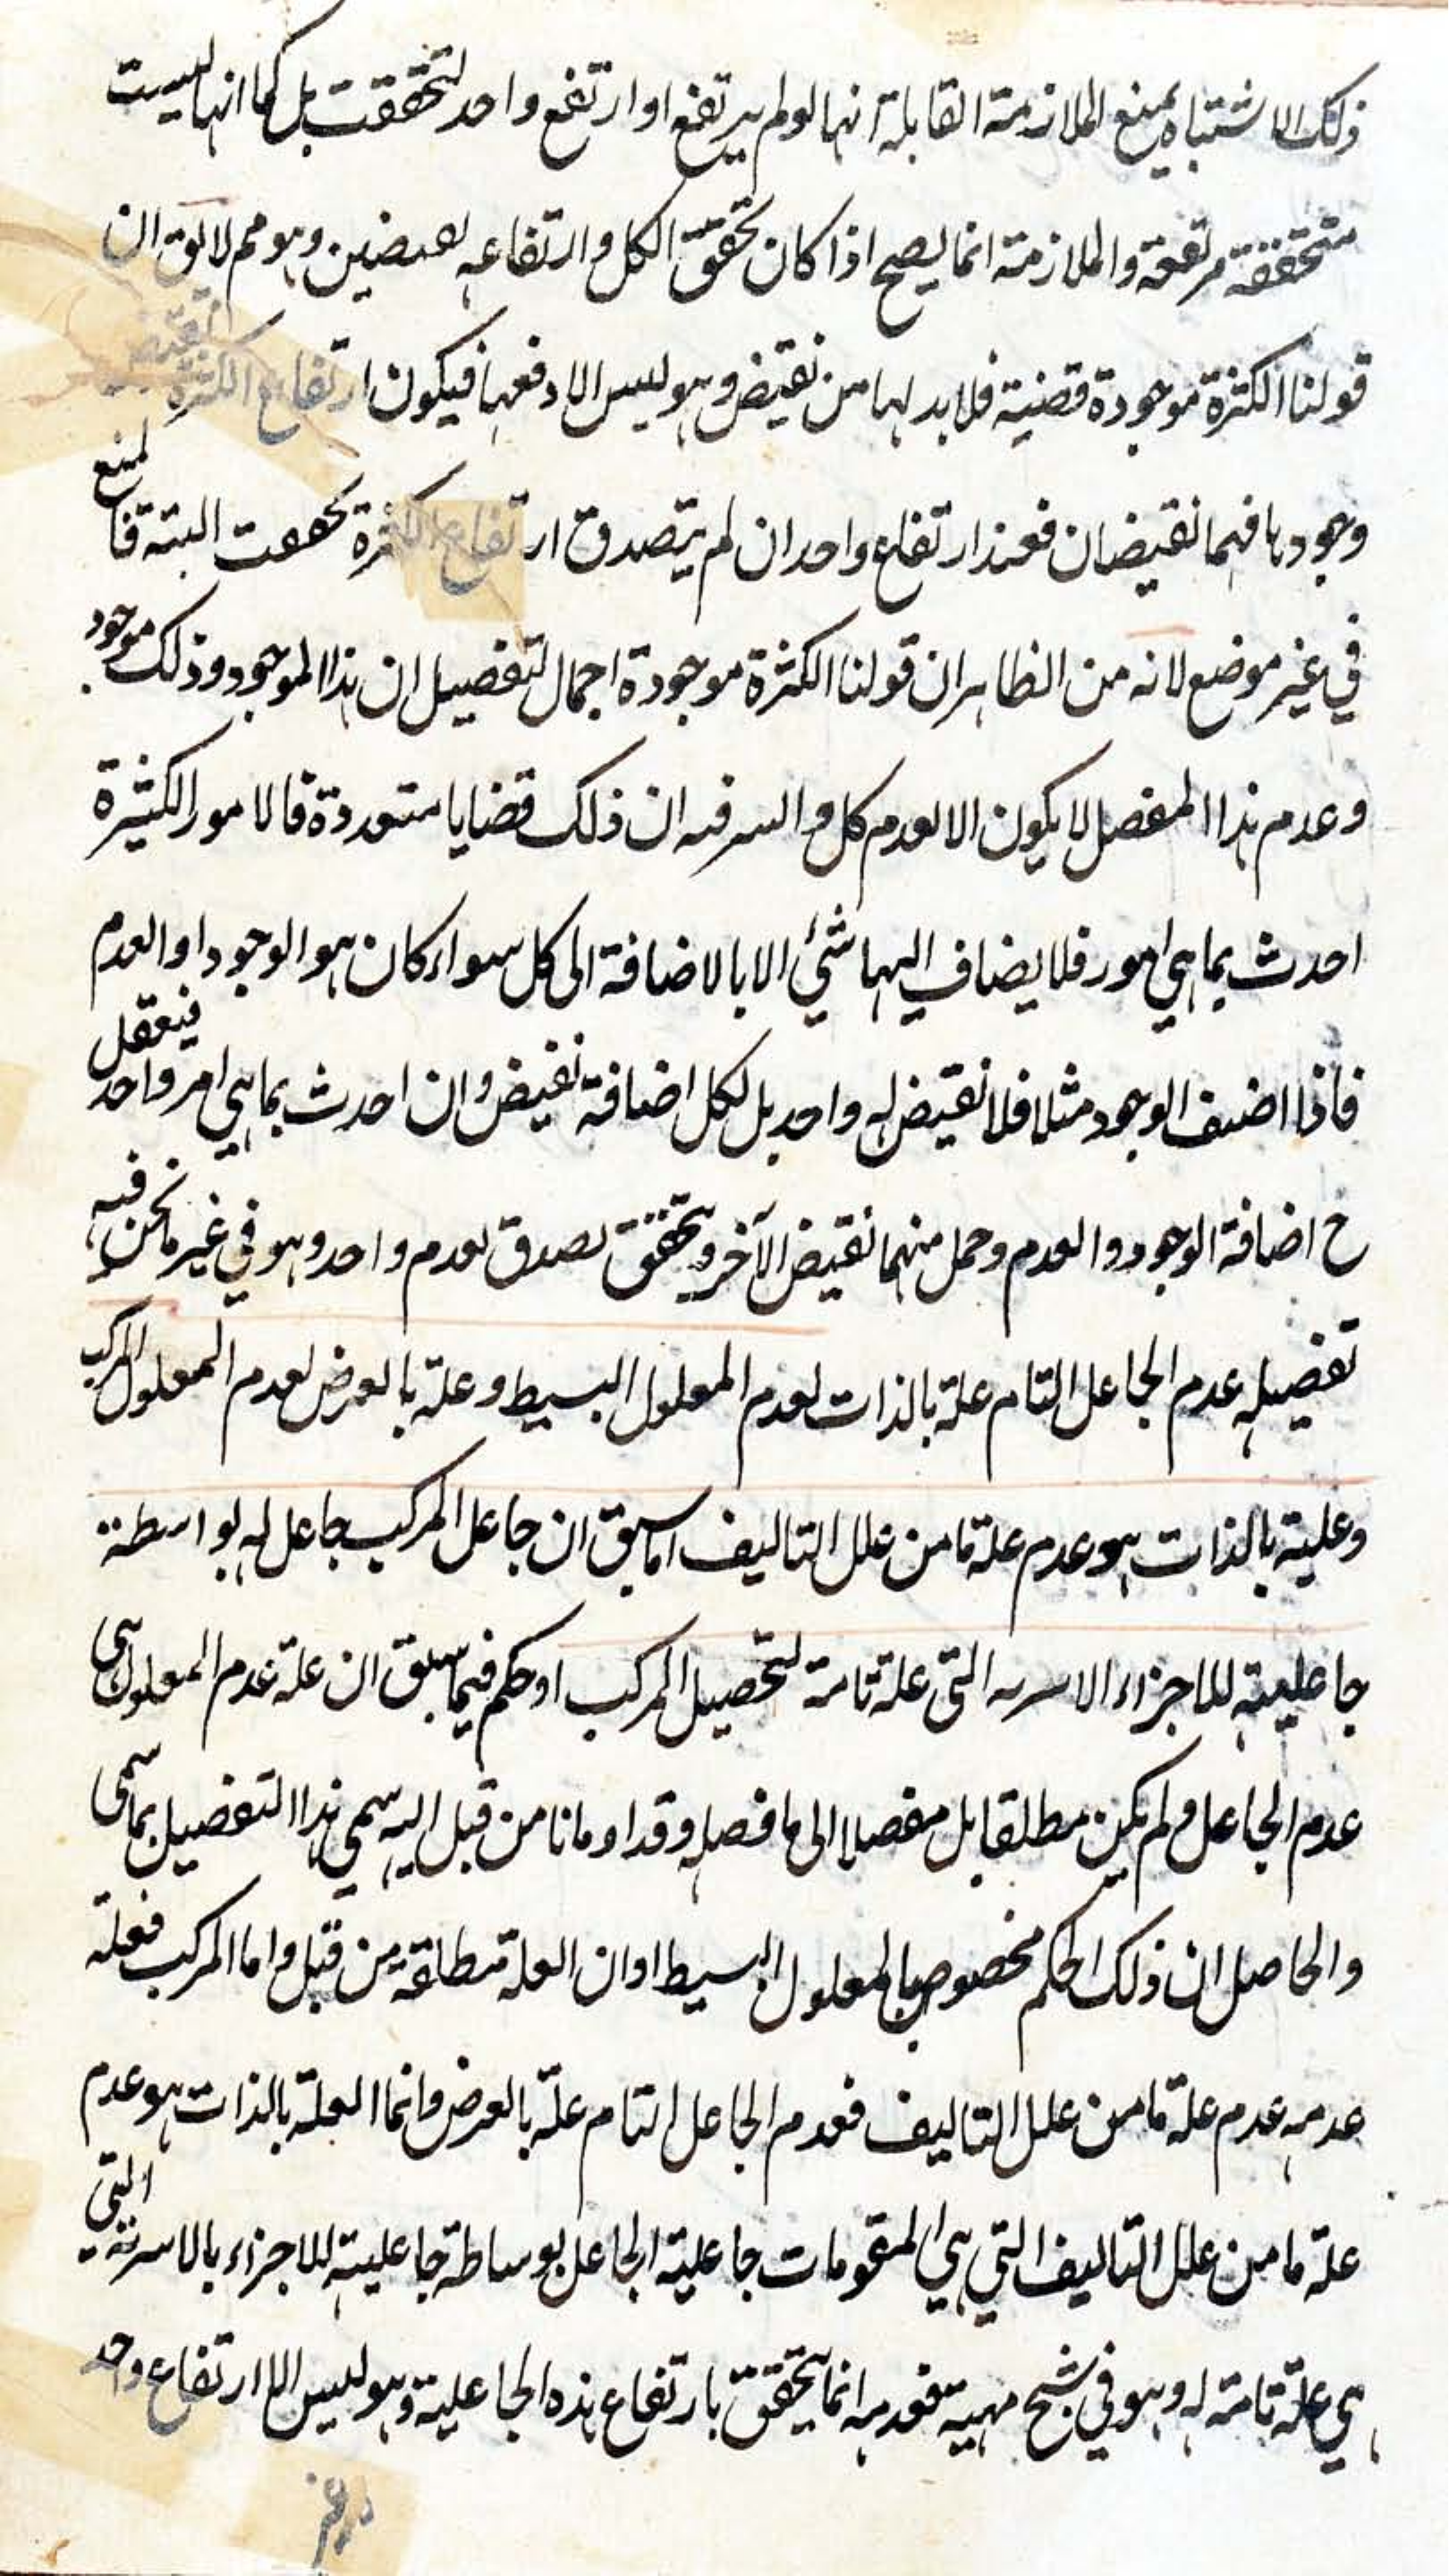 ذلك الاشتباه بمنع الملازمة القابلة انها لو لم يرتفع او ارتفع واحد لتحققت بل كما انها ليست
متحققة مرتفعة والملازمة انما يصح اذا كان تحقق الكل وارتفاعه نقيضين وهو مم لا يق ان
قولنا الكثرة موجودة قضية فلا بد لها من نقيض وهو ليس الا دفعها فيكون ارتفاع الكثرة نقيض
وجودها فهما نقيضان فعند ارتفاع واحد ان لم يتصدق ارتفاع الكثرة تحققت البتة فالمنع
في غير موضع لانه من الظاهر ان قولنا الكثرة موجودة اجمال لتفصيل ان هذا الموجود وذلك موجود
وعدم هذا المفصل لا يكون الا لعدم كل والسر فيه ان ذلك قضايا متعددة فالامور الكثيرة
احدث بما هي امور فلا يضاف اليها شئ الا بالاضافة الى كل سواء كان هو الوجود او العدم
فاذا اضيف الوجود مثلا فلا نقيض له واحد بل لكل اضافة نقيض وان احدث بما هي امر واحد فيعقل
ح اضافة الوجود والعدم وحمل منهما نقيض الآخر ويتحقق بصدق لعدم واحد وهو في غير ما نحن فيه
تفصيله عدم الجاعل التام علة بالذات لعدم المعلول البسيط وعلة بالعرض لعدم المعلول المركب
وعليته بالذات هو عدم علة ما من علل التاليف اما سبق ان جاعل المركب جاعل له بواسطة
جاعليته للاجزاء الاسرية التي علة تامة لتحصيل المركب او حكم فيما سبق ان علة عدم المعلول هي
عدم الجاعل ولم يكن مطلقا بل مفصلا الى ما فصله وقد اومانا من قبل اليه سمي هذا التفصيل بما سمى
والحاصل ان ذلك الحكم مخصوص بالمعلول البسيط او ان العلة مطلقة من قبل واما المركب فعلة
عدمه عدم علة ما من علل التاليف فعدم الجاعل التام علة بالعرض وانما العلة بالذات هو عدم
علة ما من علل التاليف التي هي المتقومات جاعلية الجاعل بوساطة جاعليته للاجزاء بالاسرية التي
هي علة تامة له وهو في شبح مهية فعدمه انما يتحقق بارتفاع هذه الجاعلية وهو ليس الا ارتفاع واحد